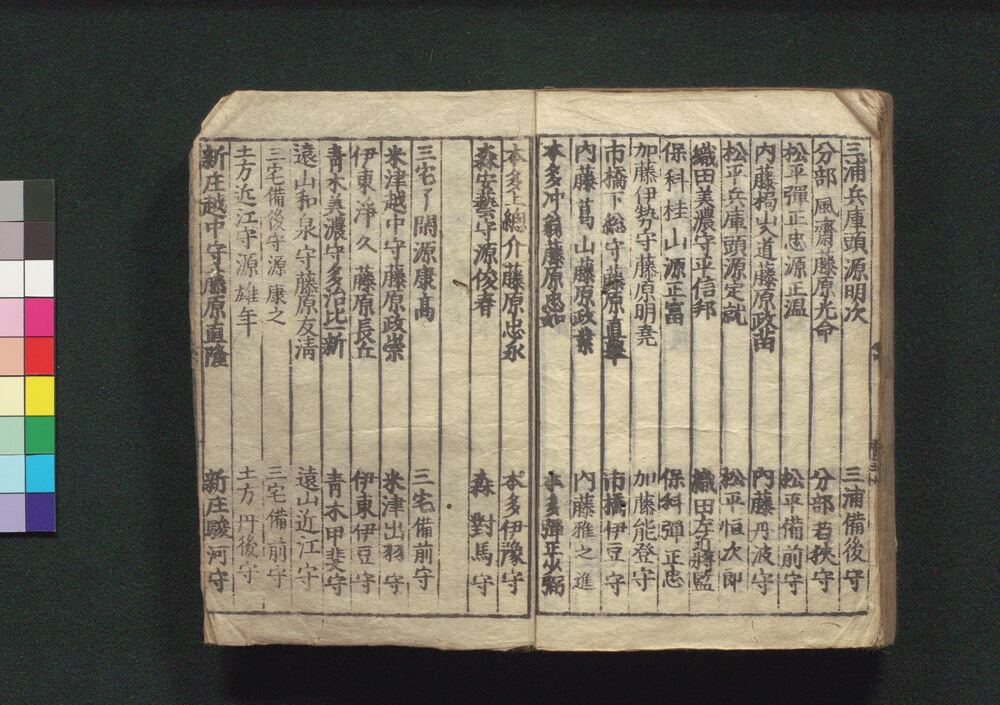 三浦兵庫頭源明次　三浦備後守
分部風齋藤原光命　分部若狹守
松平彈正忠源正温　松平備前守
内藤揚山入道藤原政苗　内藤丹波守
松平兵庫頭源定就　松平恒次郎
織田美濃守平信邦　織田左近将監
保科桂山源正富　保科彈正忠
加藤伊勢守藤原明堯　加藤能登守
市橋下総守藤原直　市橋伊豆守
内藤葛山藤原政業　内藤雅之進
本多冲翁藤原忠如　本多彈正少弼
本多上總介藤原忠永　本多伊豫守
森安藝守源俊春　森對馬守
三宅了閑源康髙　三宅備前守
米津越中守藤原政崇　米津出羽守
伊東淨久藤原長丘　伊東伊豆守
青木美濃守多治比一新　青木甲斐守
遠山和泉守藤原友清　遠山近江守
三宅備後守源康之　三宅備前守
土方近江守源雄年　土方丹後守
新庄越中守藤原直隆　新庄駿河守